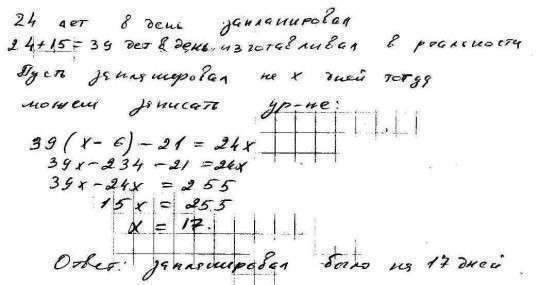 24 дет в день запланировал
24+15=39 дет в день изготавливал в реальности
Пусть запланировал на x дней тогда
можем записать ур-не:
39(x-6)-21=24x
39x-234-21=24x
39x-24x=255
15x=255
x=17.
Ответ: запланировал было на 17 дней